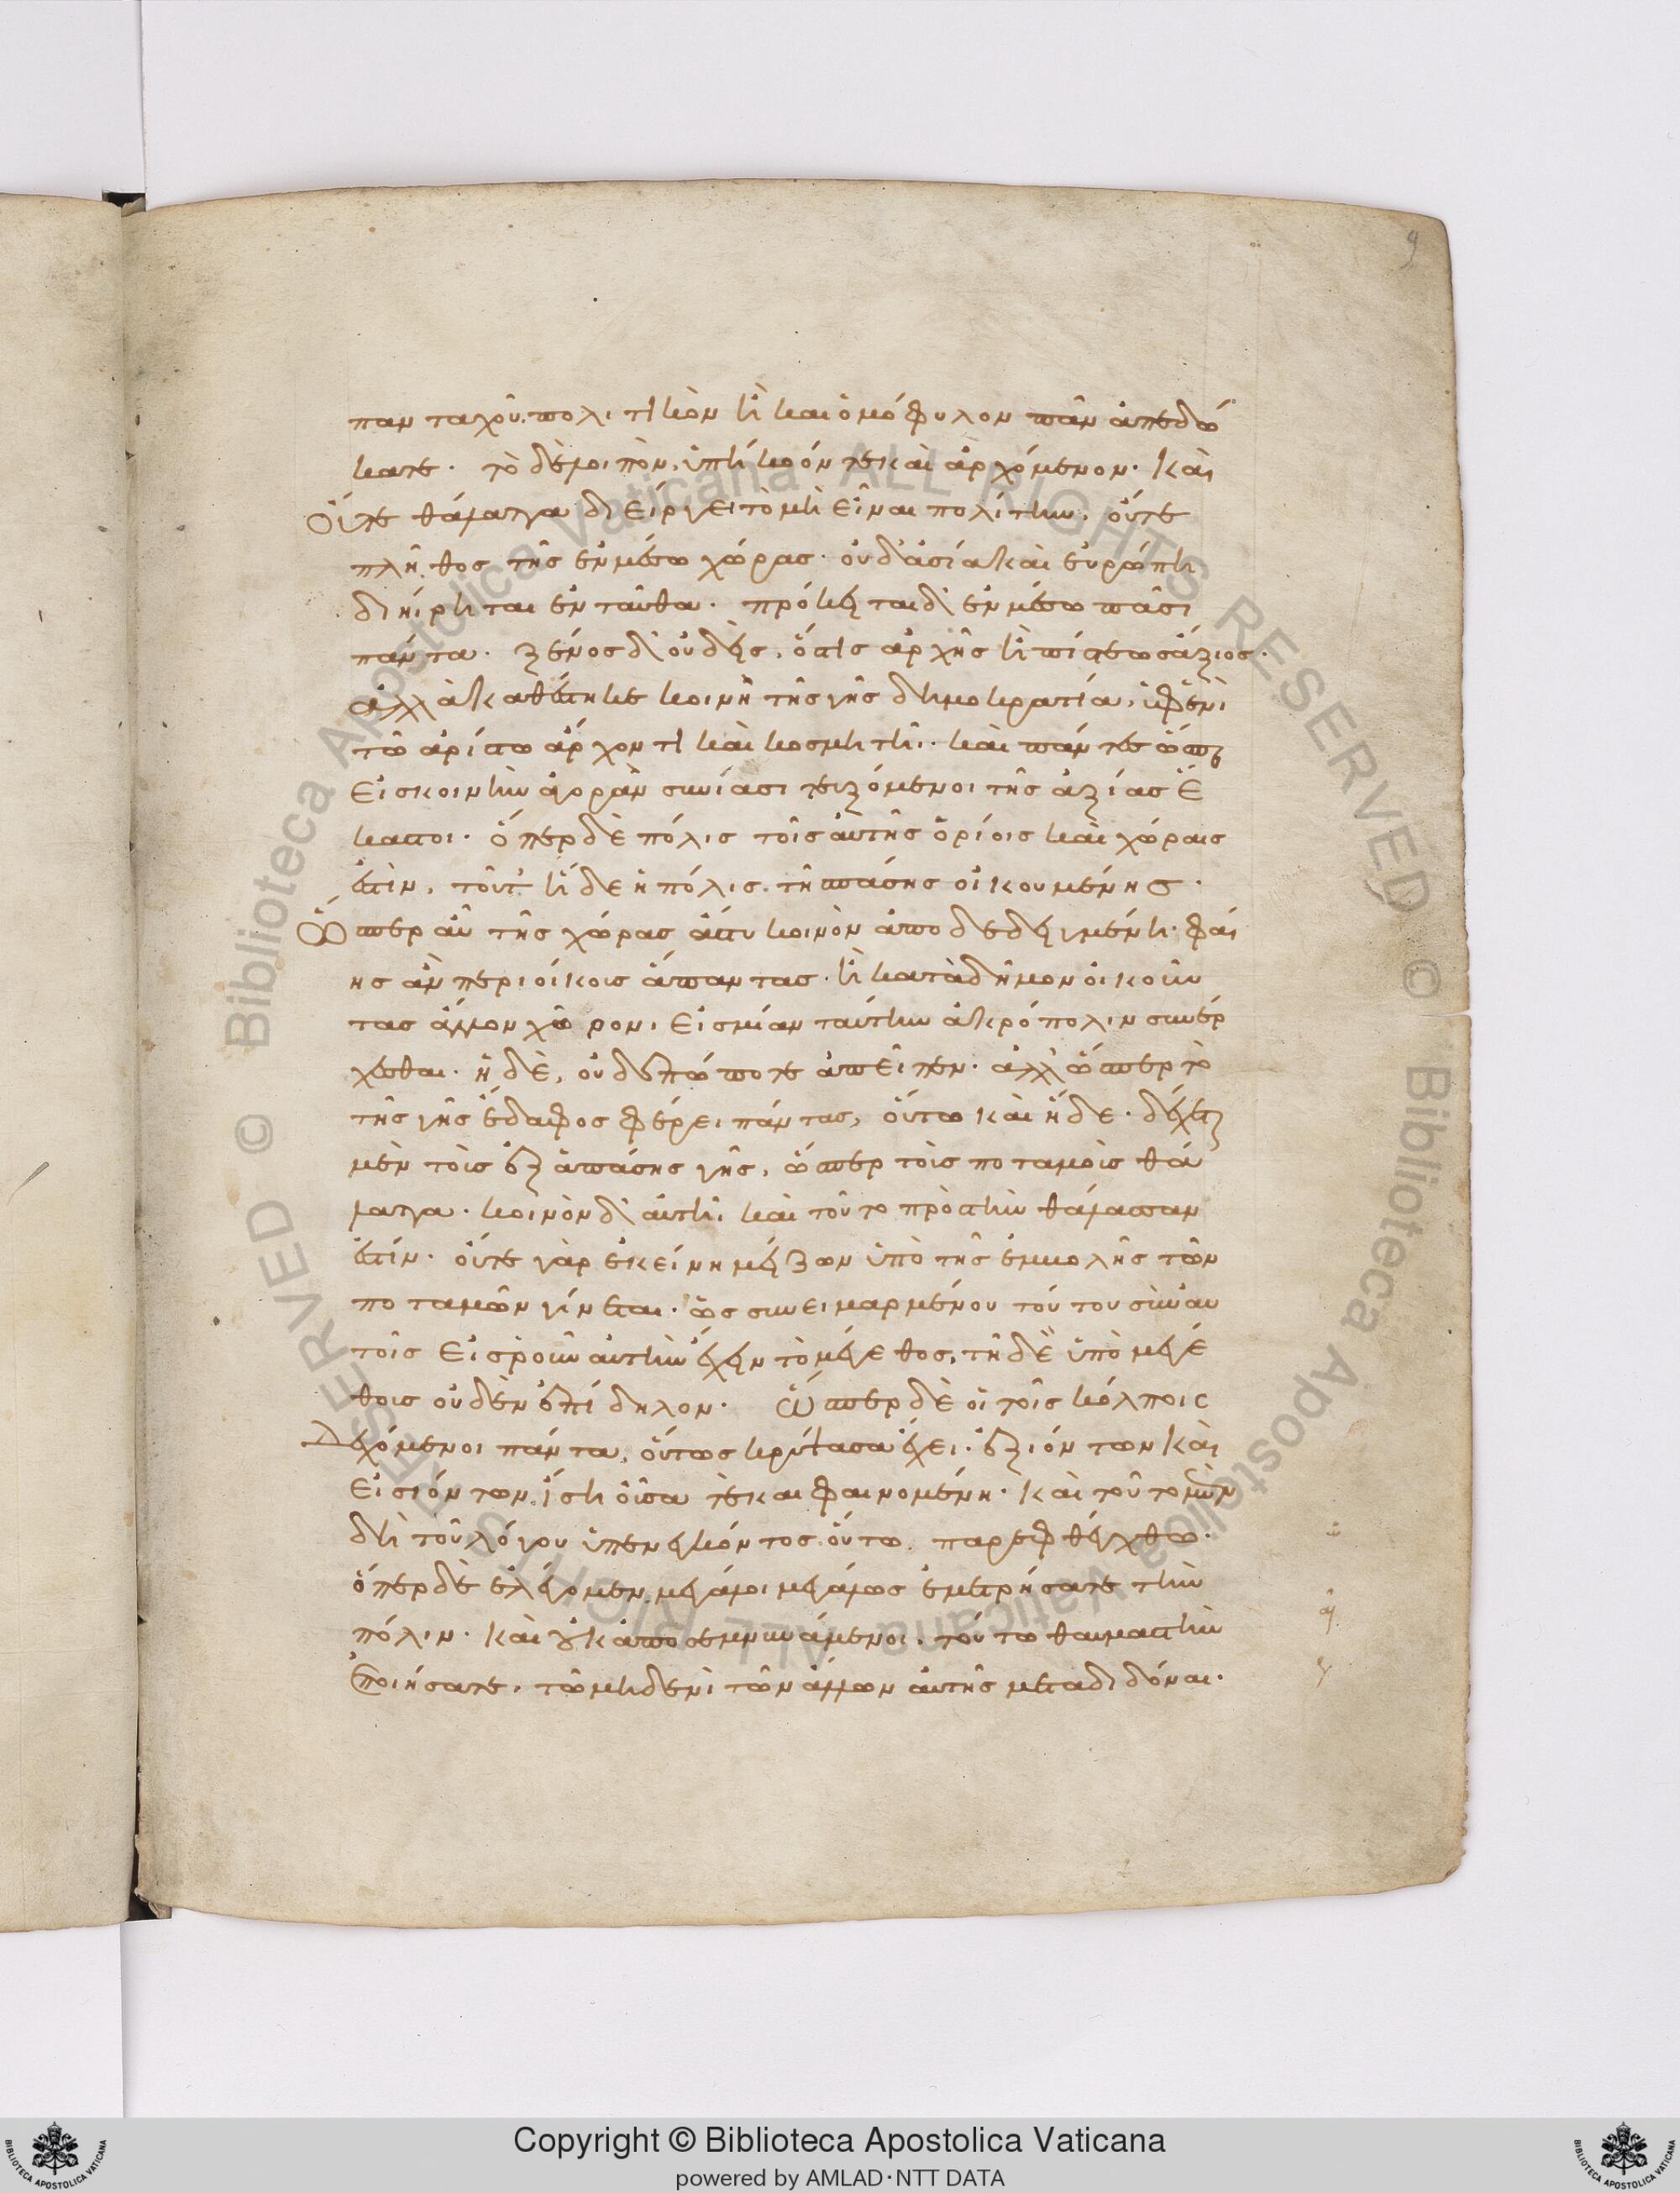 9
πανταχοῦ πολιτικὸν ἢ καὶ ὁμόφυλον πᾶν ἀπεδώ
κατε. τὸ δὲ λοιπὸν, ὑπήκοόν τε καὶ ἀρχόμενον. καὶ
Οὔτε θάλαττα διείργει τὸ μὴ εἶναι πολίτην, οὔτε
πλῆθος τῆς ἐν μέσω χώρας. οὐδ' ἀσία καὶ εὐρώπη
διήρηται ἐνταῦθα. πρόκειται δ' ἐν μέσω πᾶσι
πάντα. ξένος δ' οὐδεὶς, ὅστις ἀρχῆς ἢ πίστεως ἄξιος.
ἀλλὰ καθέστηκε κοινὴ τῆς γῆς δημοκρατία, ὑφ' ἑνὶ
τῶ ἀρίστω ἄρχοντι καὶ κοσμητῆ. καὶ πάντες ὥσπερ
εἰς κοινὴν ἀγορὰν συνίασι τευξόμενοι τῆς ἀξίας ἕ
καστοι. ὅπερ δὲ πόλις τοῖς αὑτῆς ὁρίοις καὶ χώραις
ἐστὶν, τοῦτ' ἥδε ἡ πόλις τῆς πάσης οἰκουμένης.
Ὥσπερ αὖ τῆς χώρας ἄστυ κοινὸν ἀποδεδειγμένη. φαί
ης ἂν περιοίκοις ἅπαντας. ἢ κατὰ δῆμον οἰκοῦν
τας ἄλλον χῶρον, εἰς μίαν ταύτην ἀκρόπολιν συνέρ
χεσθαι. ἡ δὲ, οὐδεπώποτε ἀπεῖπεν. ἀλλ' ὥσπερ τὸ
τῆς γῆς ἔδαφος φέρει πάντας, οὕτω καὶ ἥδε. δέχεται
μὲν τοῖς ἐξ ἁπάσης γῆς, ὥσπερ τοῖς ποταμοῖς θά
λαττα. κοινὸν δ' αὐτῆ, καὶ τοῦτο πρὸς τὴν θάλασσαν
ἐστίν. οὔτε γὰρ ἐκείνη μείζων ὑπὸ τῆς ἐμβολῆς τῶν
ποταμῶν γίνεται. ὡς συνειμαρμένου τούτου σὺν αὐ
τοῖς εἰσροῦν αὐτὴν ἔχειν τὸ μέγεθος, τῆδε ὑπὸ μεγέ
θους οὐδὲν ἐπίδηλον. Ὥσπερ δὲ οἱ τοῖς κόλποις
Δεχόμενοι πάντα, οὕτως κρύψασα ἔχει. ἐξιόντων καὶ
εἰσιόντων, ἴση οὖσα τε καὶ φαινομένη. καὶ τοῦτο μὲν
δὴ τοῦ λόγου ὑπενεγκόντος οὕτω παρεφθέγχθω.
ὅπερ δὲ ἐλέγομεν, μεγάλοι μεγάλως ἐμετρήσατε τὴν
πόλιν. καὶ οὐκ ἀποσεμνυνάμενοι, τούτω θαυμαστὴν
ἐποιήσατε, τῶ μηδενὶ τῶν ἄλλων αὐτῆς μεταδιδόναι.
Copyright © Biblioteca Apostolica Vaticana
powered by AMLAD·NTT DATA